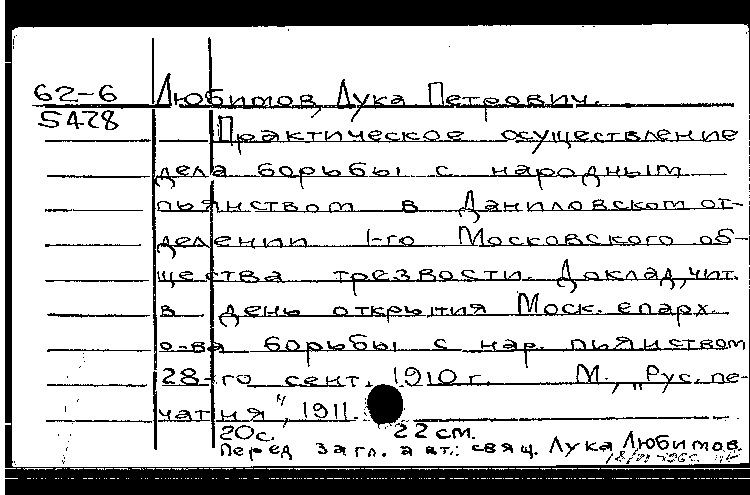 62-6 Любимов, Лука Петрович.
5428 Практическое осуществление
дела борьбы с народным
пьянством в Даниловском от-
делении 1-го Московского об-
щества трезвости. Доклад, чит.
в день открытия Моск. епарх.
о-ва борьбы с нар. пьянством
28-го сент. 1910 г. М., „Рус. пе-
чатня", 1911.
20 с. 22 см.
Перед загл. авт.: свящ. Лука Любимов.